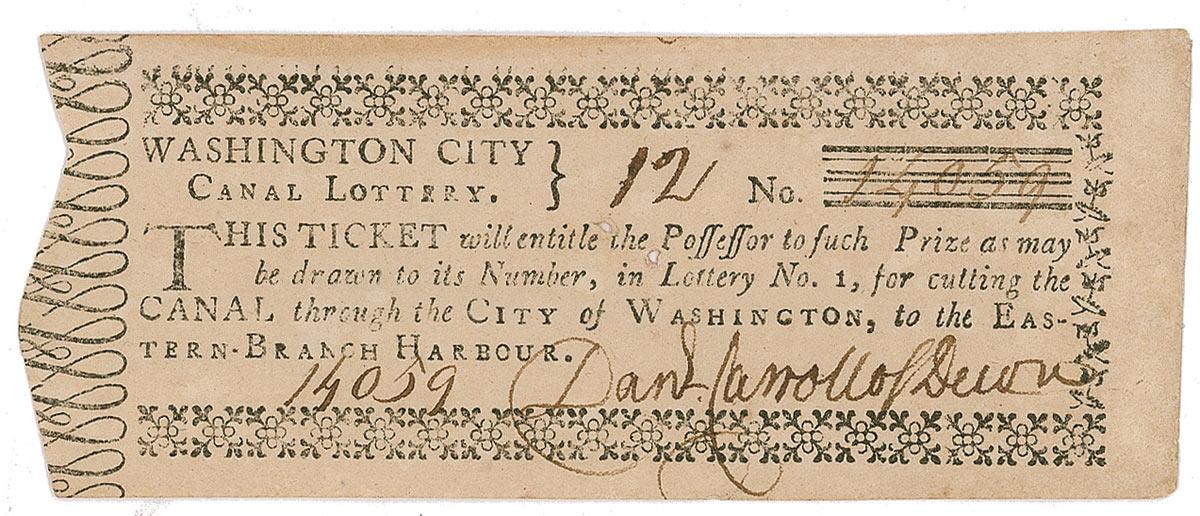 WASHINGTON CITY } 12 No. 14059
CANAL LOTTERY.
THIS TICKET will entitle the Poſſeſſor to ſuch Prize as may
be drawn to its Number, in Lottery No. 1, for cutting the
CANAL through the CITY of WASHINGTON, to the EAS-
TERN-BRANCH HARBOUR.
14059 Danl. Carroll of Duddn